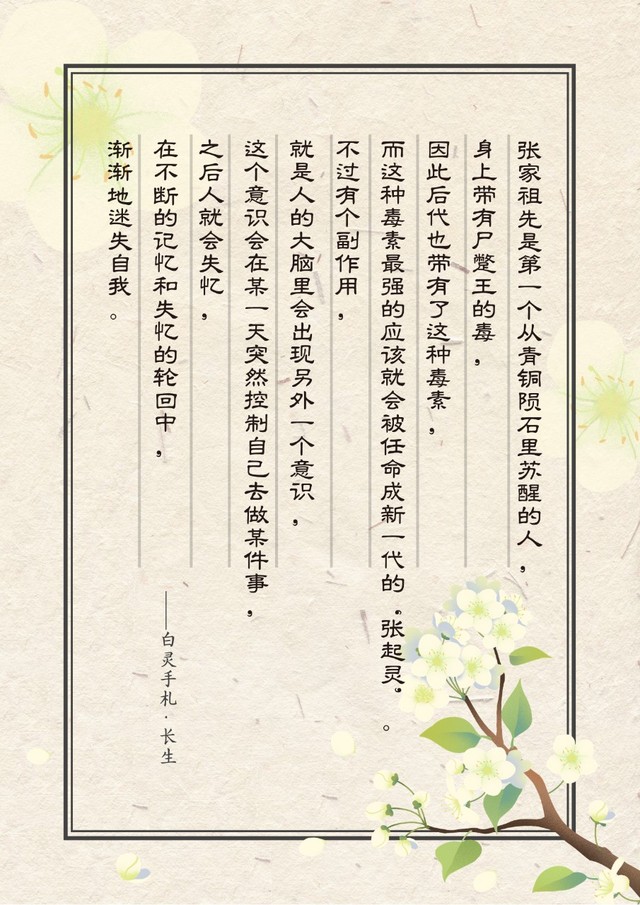 张家祖先是第一个从青铜陨石里苏醒的人，
身上带有尸蹩王的毒，
因此后代也带有了这种毒素，
而这种毒素最强的应该就会被任命成新一代的“张起灵”。
不过有个副作用，
就是人的大脑里会出现另外一个意识，
这个意识会在某一天突然控制自己去做某件事，
之后人就会失忆，
在不断的记忆和失忆的轮回中，
渐渐地迷失自我。
——白灵手札·长生